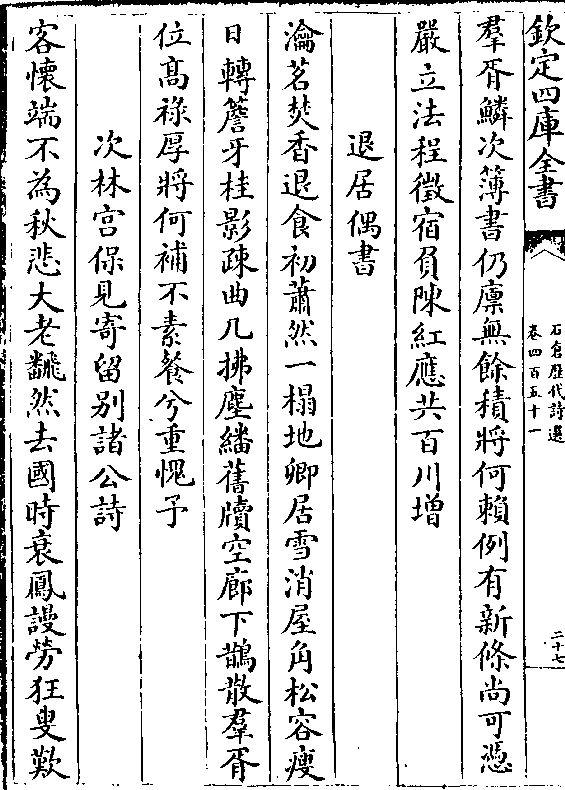 欽定四庫全書
石倉歷代詩選
卷四百五十一
二十七
羣胥鱗次簿書仍廪無餘積將何賴例有新條尚可憑
嚴立法程徵宿負陳紅應共百川增
退居偶書
瀹茗焚香退食初蕭然一榻地卿居雪消屋角松容瘦
日轉簷牙桂影疎曲几拂塵繙舊牘空廊下鵲散羣胥
位髙祿厚將何補不素餐兮重愧予
次林宫保見寄留别諸公詩
客懷端不為秋悲大老飜然去國時衰鳳謾勞狂叟歎